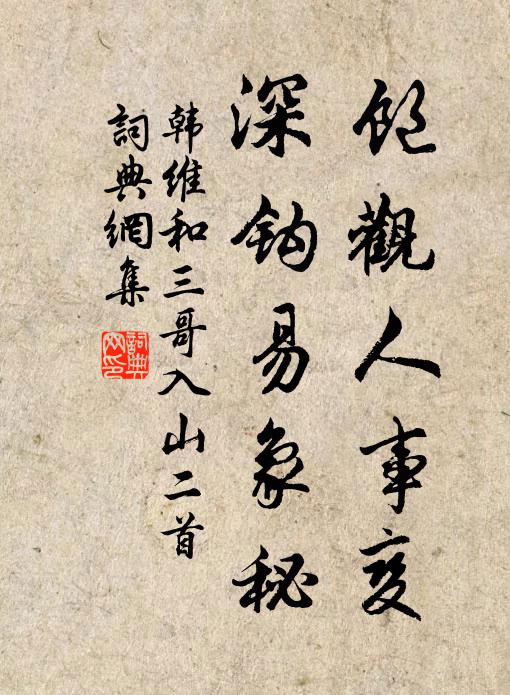 飽觀人事变
深鈎易象秘
韩维和三哥入山二首
詞典網集
詞典
网印